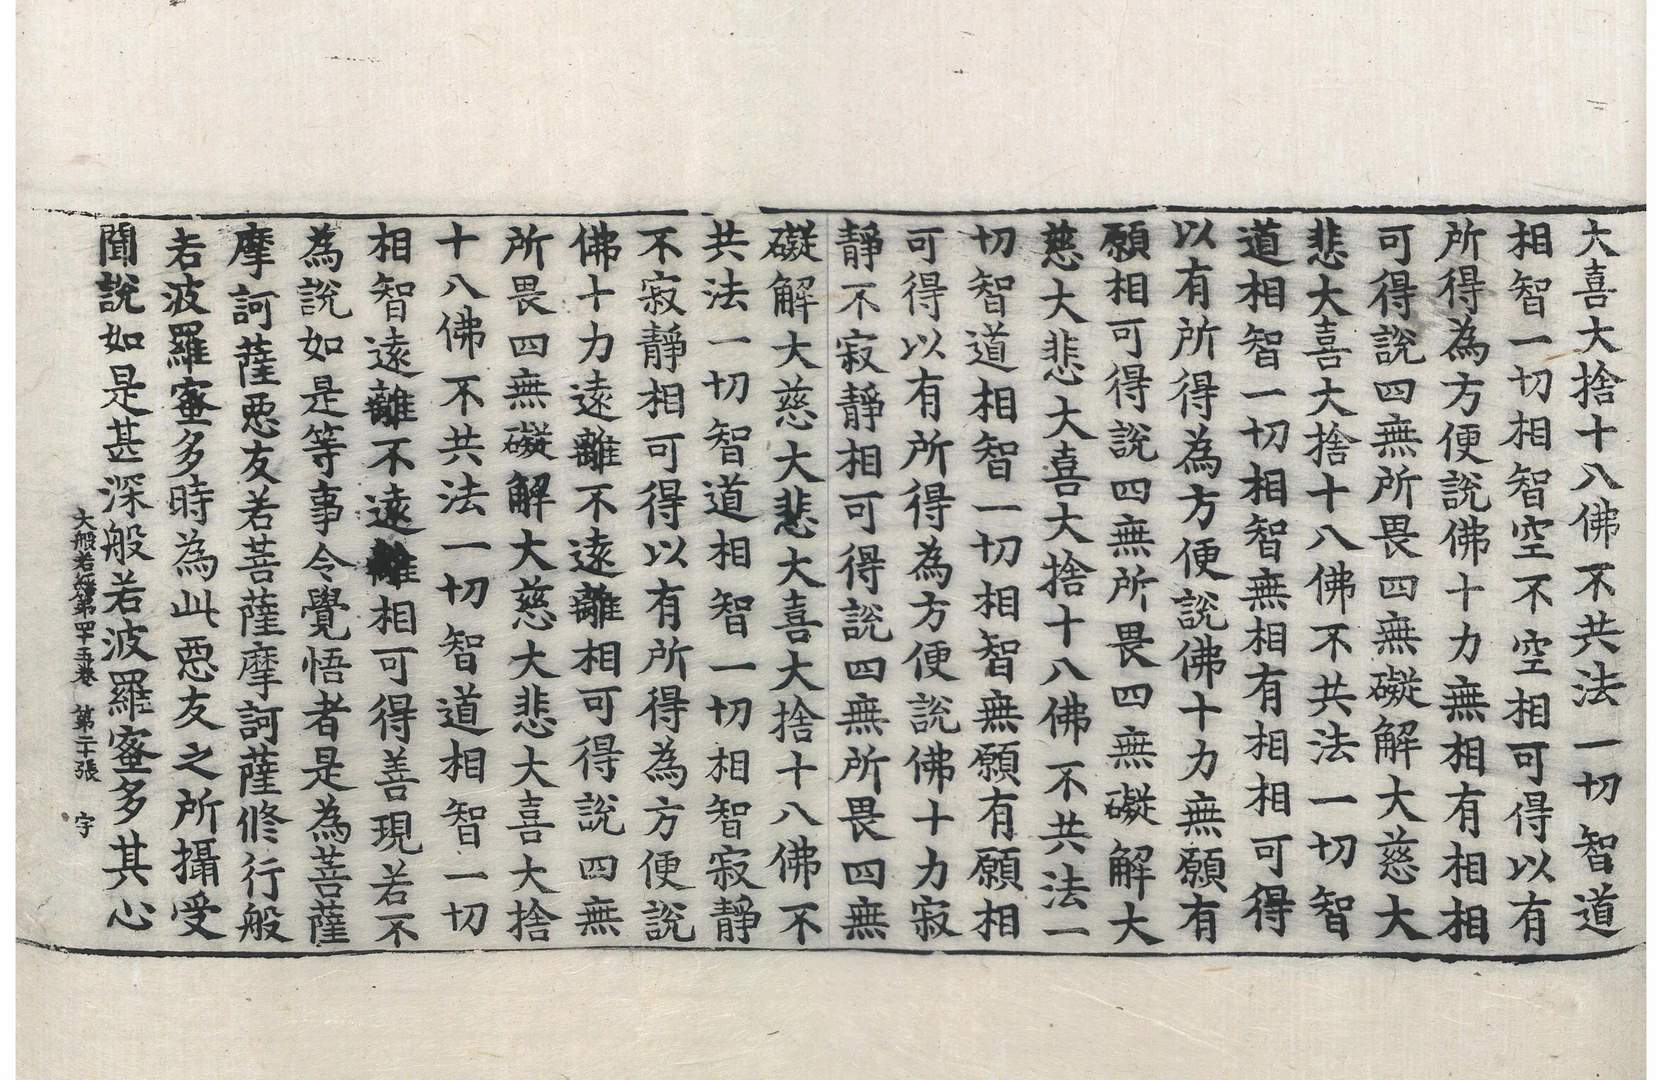 大喜大捨十八佛不共法一切智道
相智一切相智空不空相可得以有
所得為方便說佛十力無相有相相
可得說四無所畏四無礙解大慈大
悲大喜大捨十八佛不共法一切智
道相智一切相智無相有相相可得
以有所得為方便說佛十力無願有
願相可得說四無所畏四無礙解大
慈大悲大喜大捨十八佛不共法一
切智道相智一切相智無願有願相
可得以有所得為方便說佛十力寂
靜不寂靜相可得說四無所畏四無
礙解大慈大悲大喜大捨十八佛不
共法一切智道相智一切相智寂靜
不寂靜相可得以有所得為方便說
佛十力遠離不遠離相可得說四無
所畏四無礙解大慈大悲大喜大捨
十八佛不共法一切智道相智一切
相智遠離不遠離相可得善現若不
為說如是等事令覺悟者是為菩薩
摩訶薩惡友若菩薩摩訶薩修行般
若波羅蜜多時為此惡友之所攝受
聞說如是甚深般若波羅蜜多其心
大般若經第四十五卷 第二十張 字